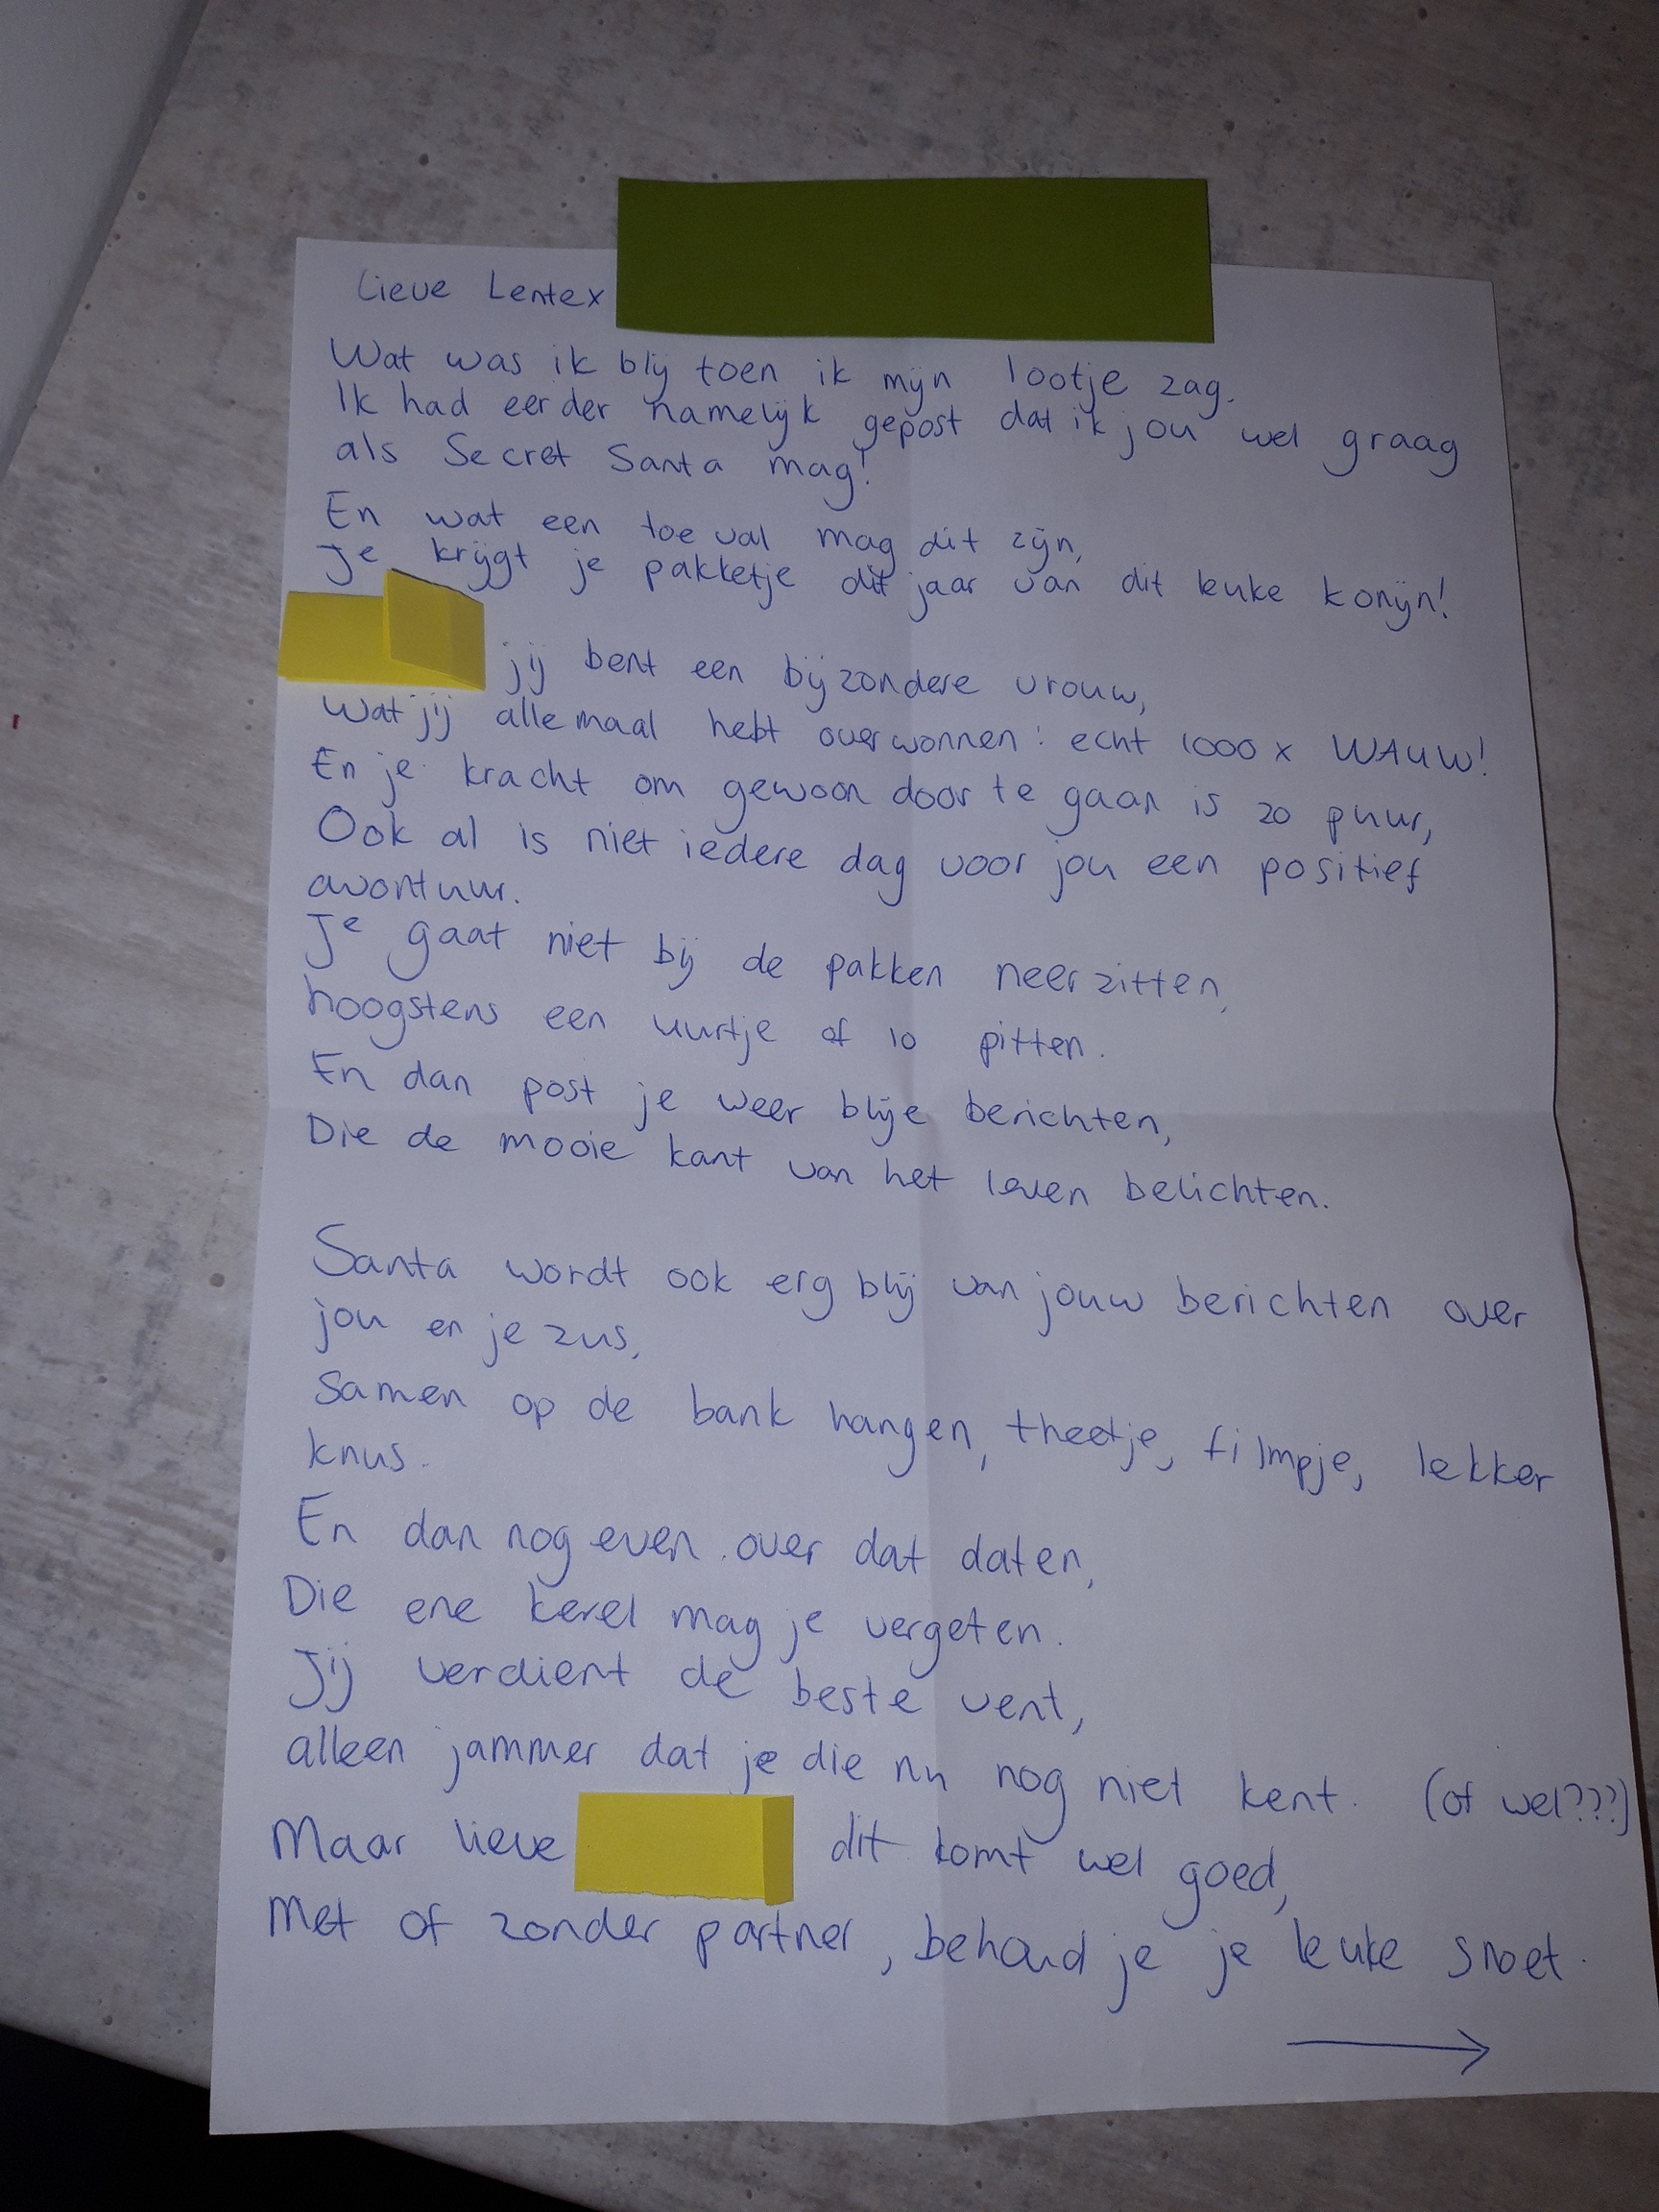 Lieve Lentex
Wat was ik blij toen ik mijn lootje zag.
Ik had eerder namelijk gepost dat ik jou wel graag
als Secret Santa mag!
En wat een toeval mag dit zijn,
Je krijgt je pakketje dit jaar van dit leuke konijn!
jij bent een bijzondere vrouw,
Wat jij allemaal hebt overwonnen: echt 1000 x WAUW!
En je kracht om gewoon door te gaan is zo puur,
Ook al is niet iedere dag voor jou een positief
avontuur.
Je gaat niet bij de pakken neerzitten,
hoogstens een uurtje of 10 pitten.
En dan post je weer blije berichten,
Die de mooie kant van het leven belichten.
Santa wordt ook erg blij van jouw berichten over
jou en je zus,
Samen op de bank hangen, theetje, filmpje, lekker
knus.
En dan nog even over dat daten,
Die ene kerel mag je vergeten.
Jij verdient de beste vent,
alleen jammer dat je die nu nog niet kent. (of wel???)
Maar lieve dit komt wel goed,
Met of zonder partner, behoud je je leuke snoet.